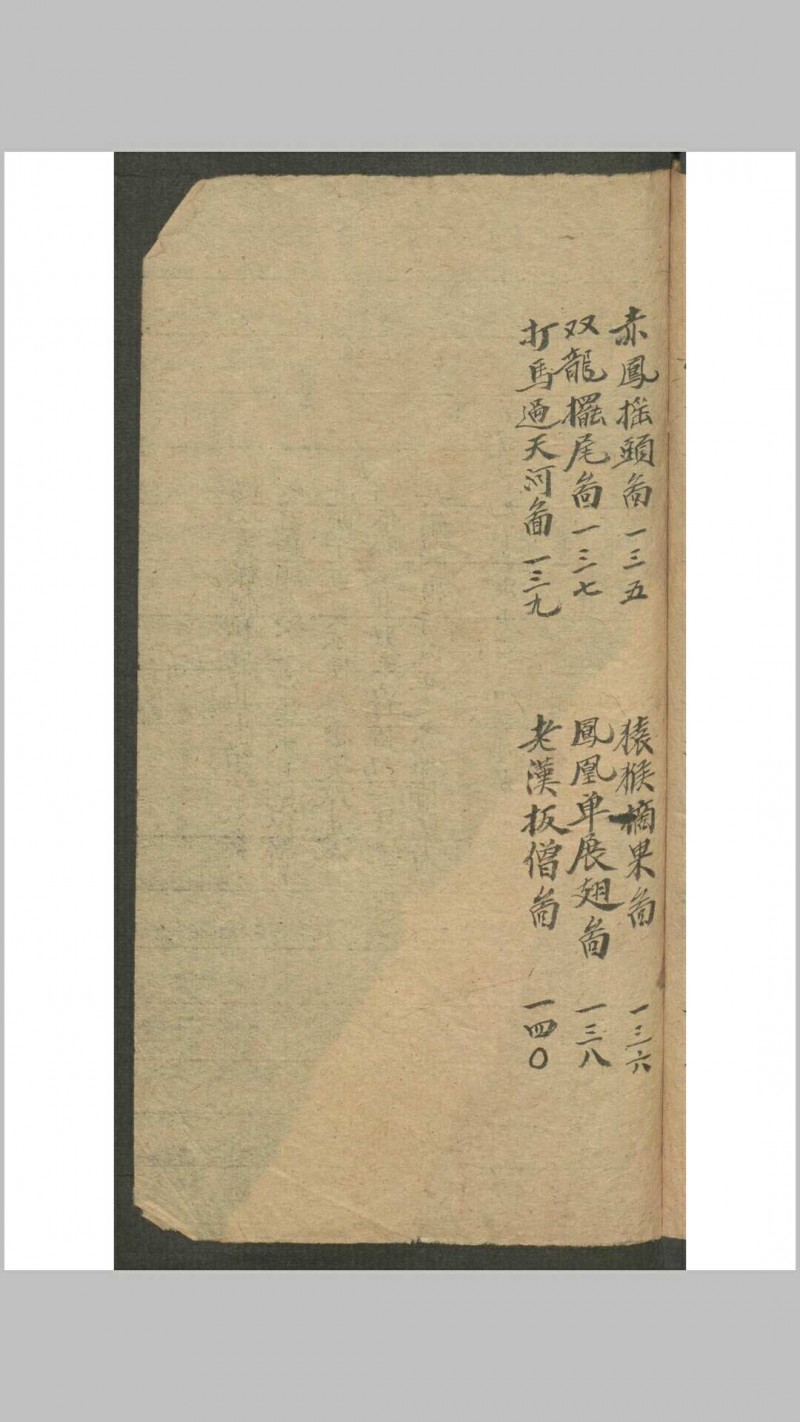 赤鳳摇頭啚 一三五 猿猴摘果啚 一三六
双龍擺尾啚 一三七 鳳凰单展翅啚 一三八
打馬過天河啚 一三九 老漢扳僧啚 一四〇